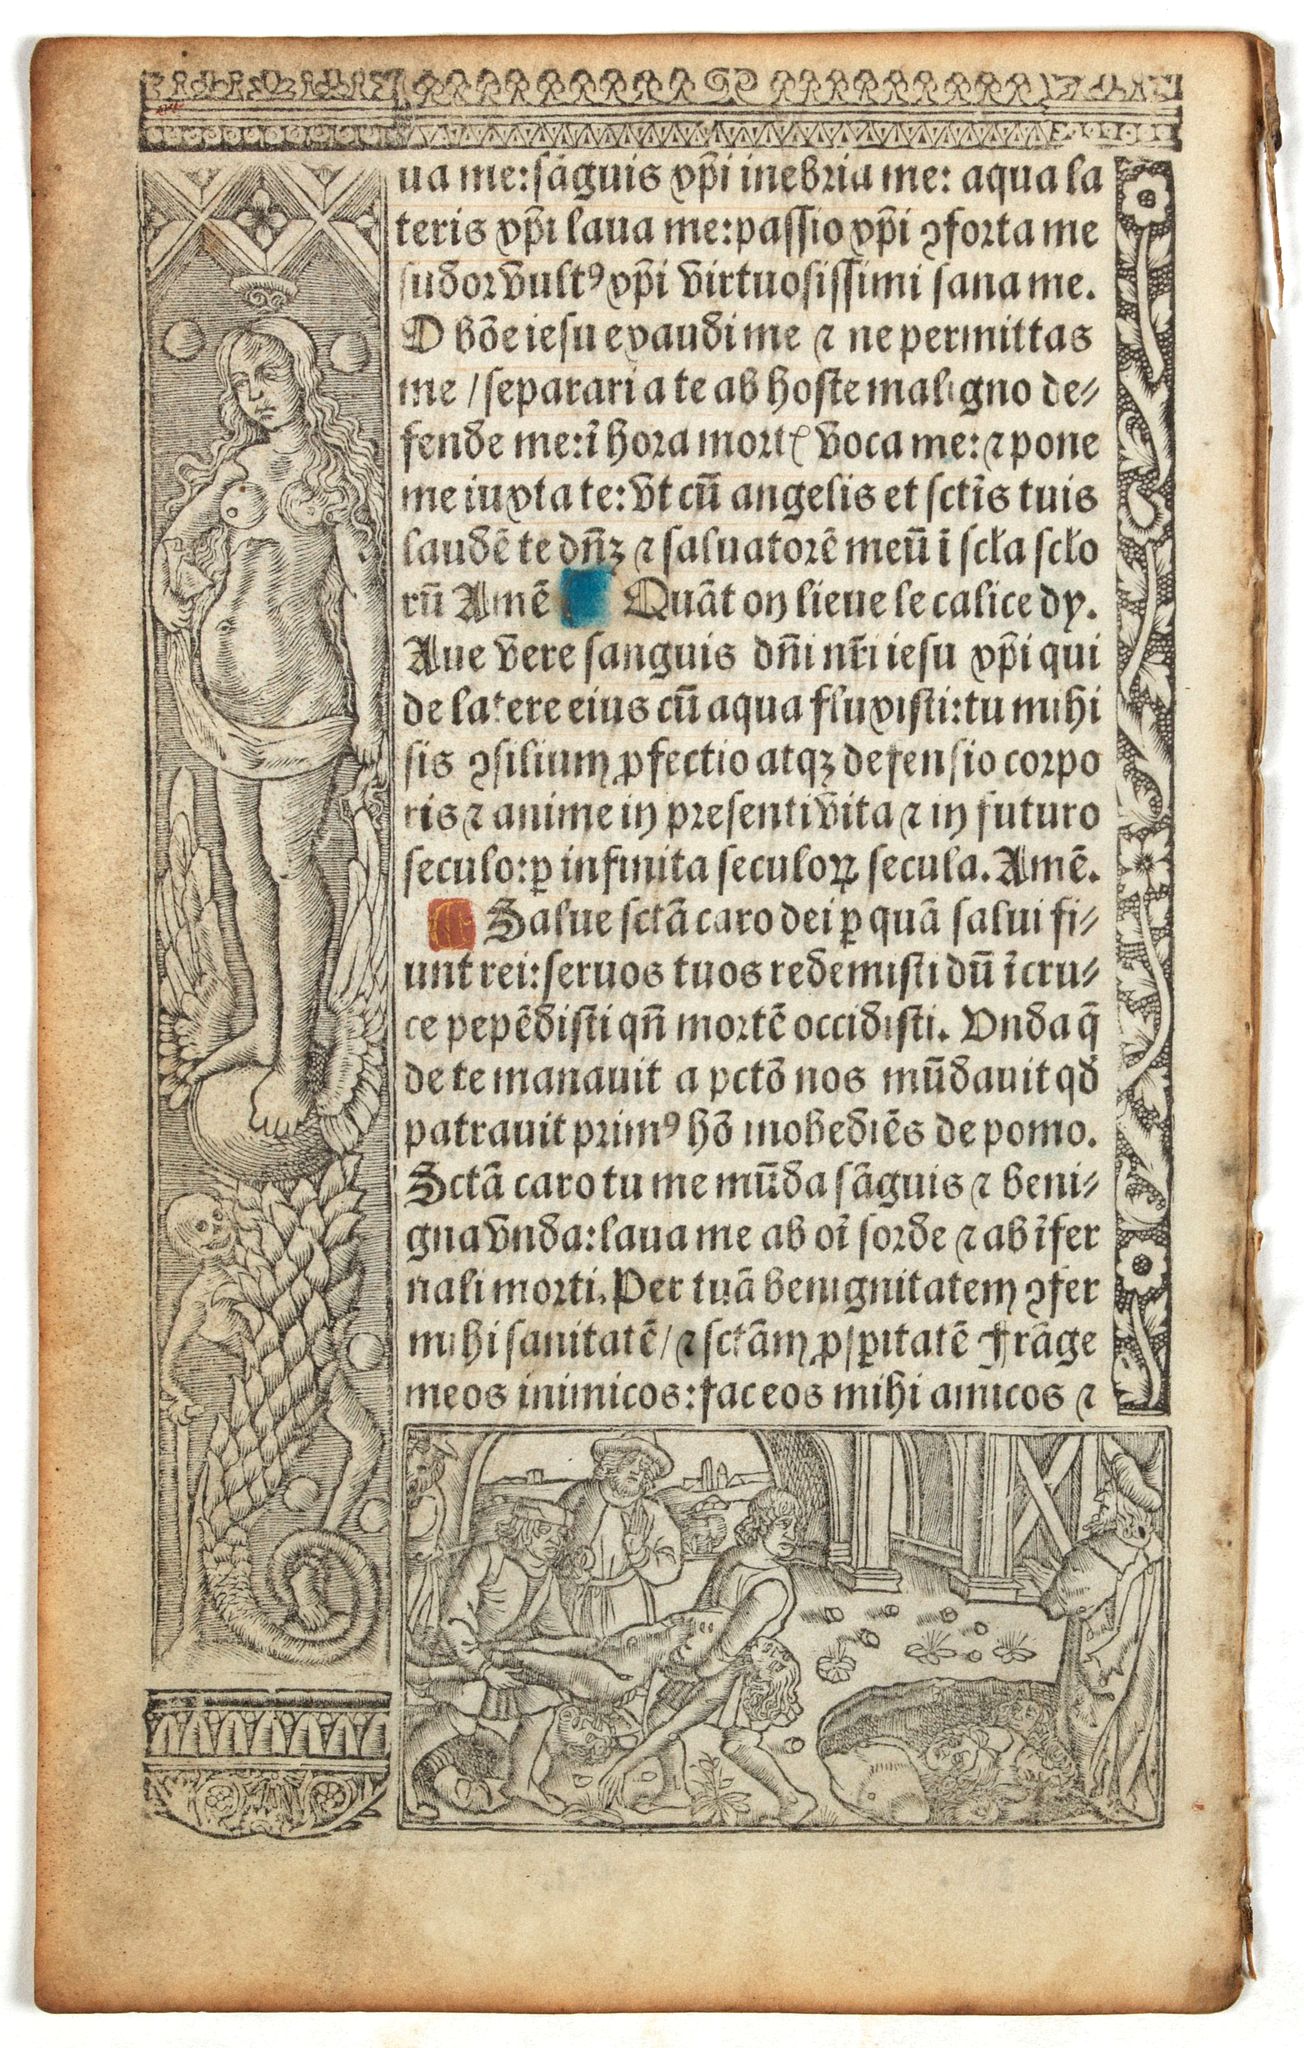 ua me: sāguis xp̄i inebria me: aqua la
teris xp̄i laua me: passio xp̄i ꝯforta me
sudor vultꝰ xp̄i virtuosissimi sana me.
O bōe iesu exaudi me ⁊ ne permittas
me / separari a te ab hoste maligno de⸗
fende me: ī hora mortꝭ voca me: ⁊ pone
me iuxta te: vt cū angelis et sctīs tuis
laudē te dn̄ꝫ ⁊ saluatorē meū ī scl̄a scl̄o
rū Amē Quāt on lieue le calice dy.
Aue vere sanguis dn̄i nr̄i iesu xp̄i qui
de latere eius cū aqua fluxisti: tu mihi
sis ꝯsilium ꝓfectio atqꝫ defensio corpo
ris ⁊ anime in presenti vita ⁊ in futuro
seculo: ꝑ infinita seculoꝝ secula. Amē.
Salue sctā caro dei ꝑ quā salui fi⸗
unt rei: seruos tuos redemisti dū ī cru⸗
ce pepēdisti qn̄ mortē occidisti. Vnda q̄
de te manauit a pctō nos mūdauit qđ
patrauit primꝰ hō inobediēs de pomo.
Sctā caro tu me mūda sāguis ⁊ beni⸗
gna vnda: laua me ab oī sorde ⁊ ab īfer
nali morti. Per tuā benignitatem ꝯfer
mihi sanitatē / ⁊ sctām ꝓsꝑitatē Frāge
meos inimicos: fac eos mihi amicos ⁊